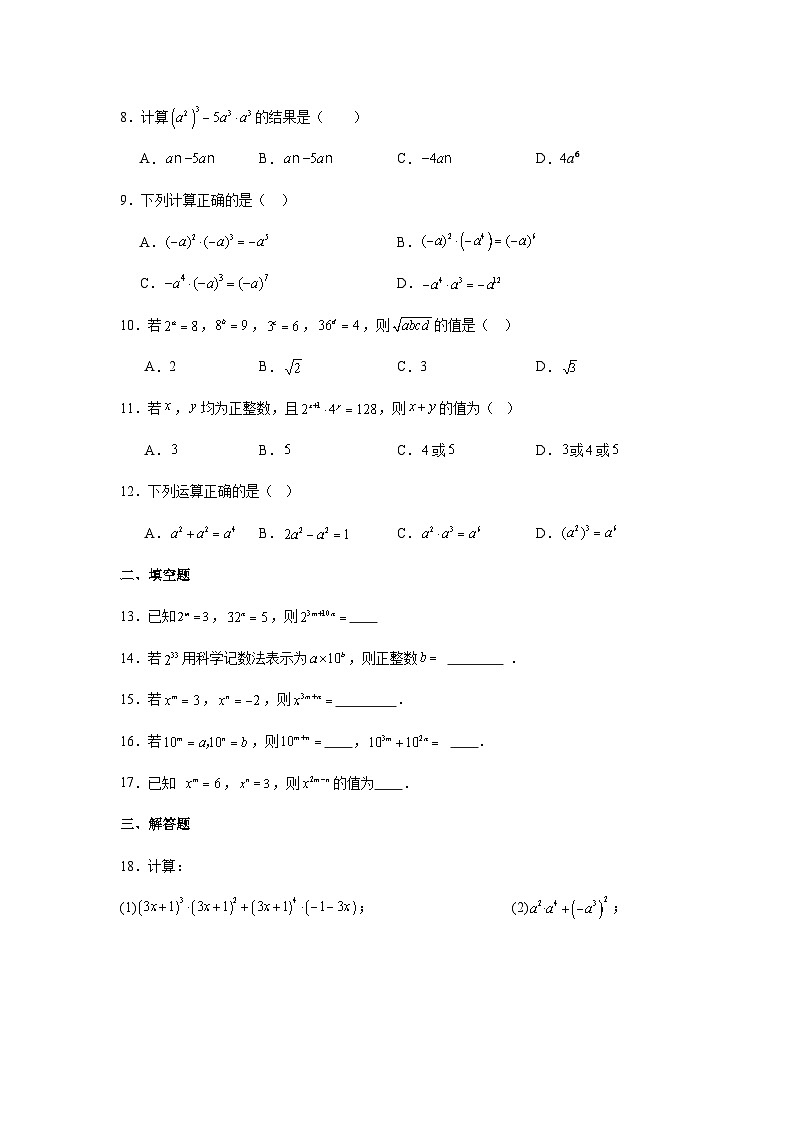 8.计算(a²)³−5a³·a³的结果是(  )
A.an−5an B.an−5an C.−4an D.4a⁶
9.下列计算正确的是(  )
A.(−a)²·(−a)³=−a⁵ B.(−a)²·(−a⁴)=(−a)⁶
C.−a⁴·(−a)³=(−a)⁷ D.−a⁴·a³=−a¹²
10.若2ᵃ=8,8ᵇ=9,3ᶜ=6,36ᵈ=4,则√abcd的值是(  )
A.2 B.√2 C.3 D.√3
11.若x,y均为正整数,且2ˣ⁺¹·4ʸ=128,则x+y的值为(  )
A.3 B.5 C.4或5 D.3或4或5
12.下列运算正确的是(  )
A.a²+a²=a⁴ B.2a²−a²=1 C.a²·a³=a⁶ D.(a²)³=a⁶
二、填空题
13.已知2ᵐ=3,32ⁿ=5,则2³ᵐ⁺¹⁰ⁿ=____
14.若2³³用科学记数法表示为a×10ᵇ,则正整数b= ________ .
15.若xᵐ=3,xⁿ=−2,则x³ᵐ⁺ⁿ=________.
16.若10ᵐ=a,10ⁿ=b,则10ᵐ⁺ⁿ=____,10³ᵐ+10²ⁿ= ____.
17.已知 xᵐ=6,xⁿ=3,则x²ᵐ⁻ⁿ的值为____.
三、解答题
18.计算:
(1)(3x+1)³·(3x+1)²+(3x+1)⁴·(−1−3x); (2)a²·a⁴+(−a³)²;